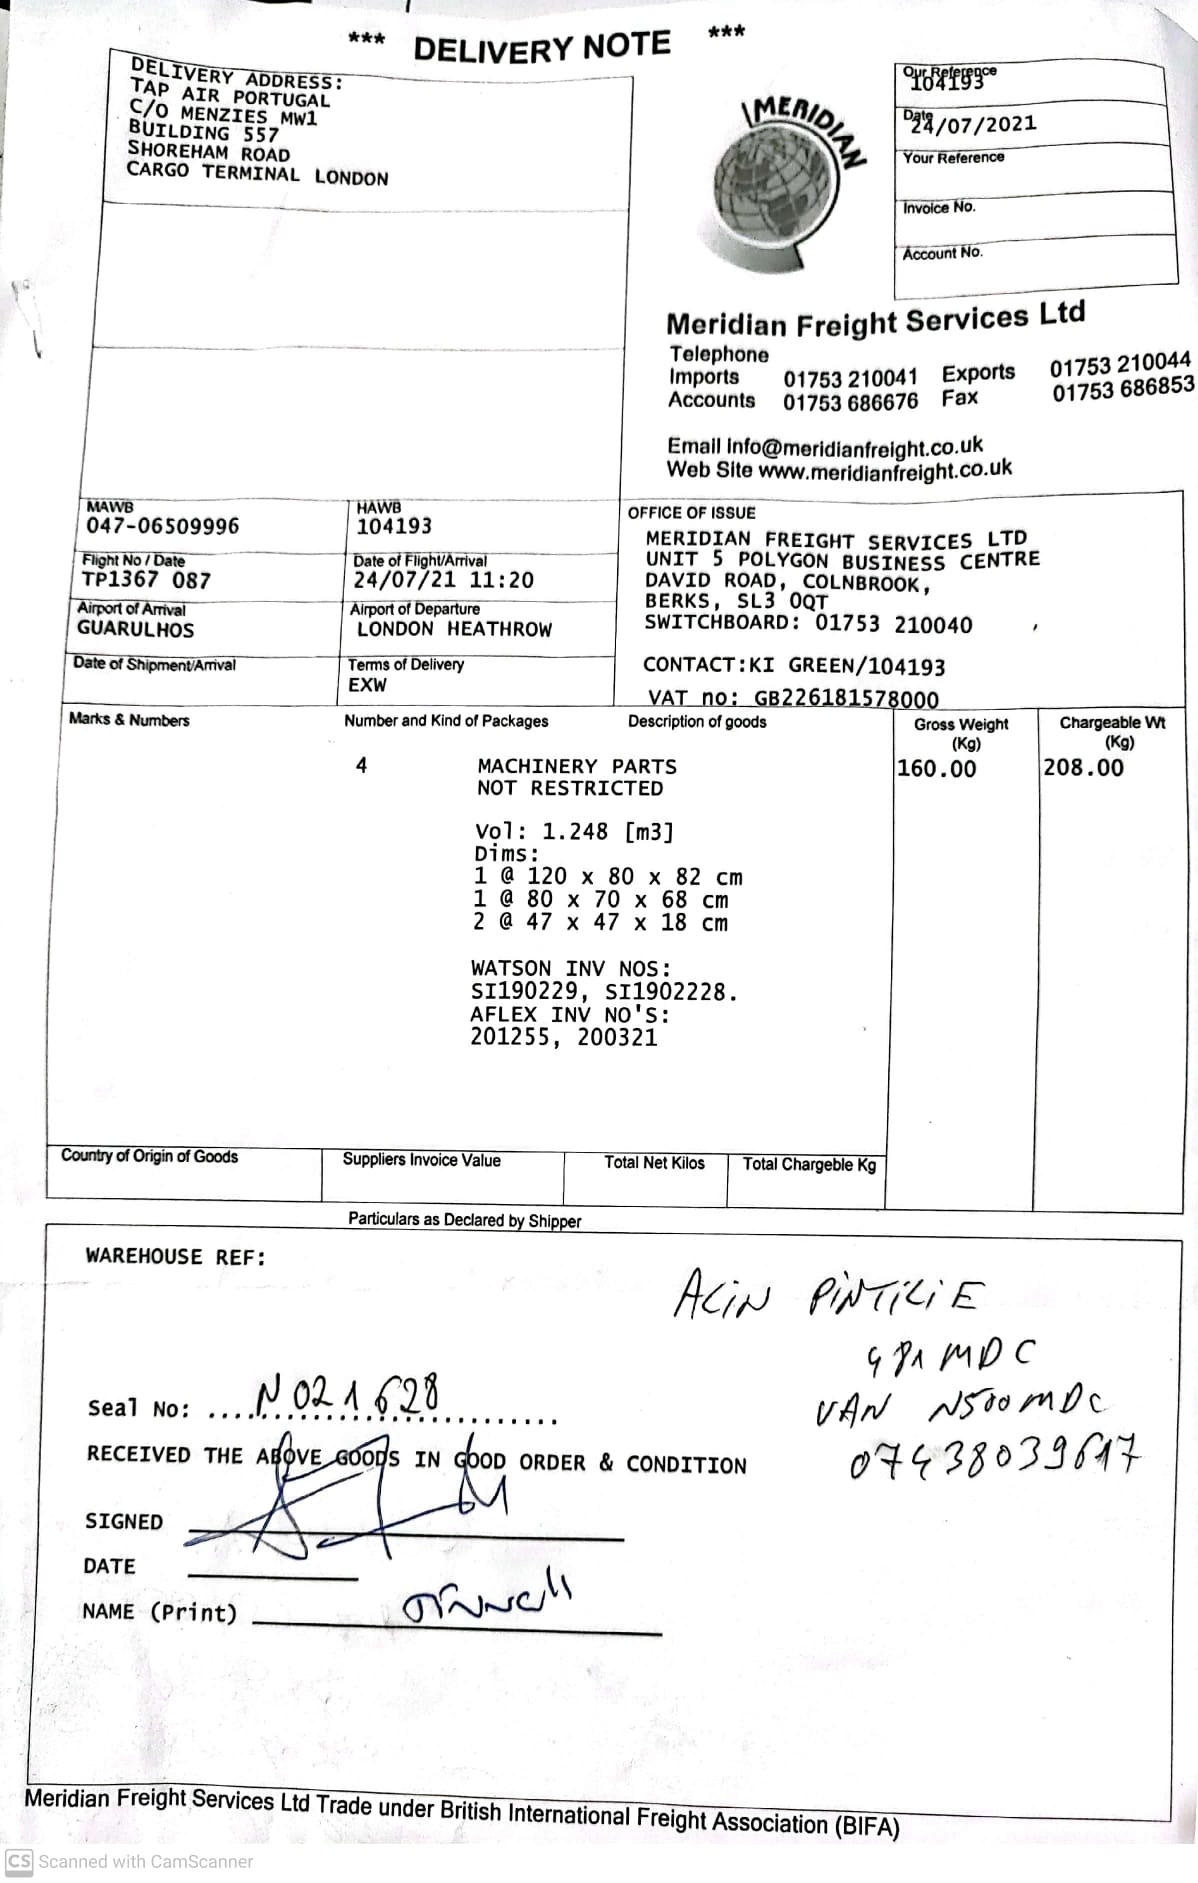 *** DELIVERY NOTE ***
DELIVERY ADDRESS:
TAP AIR PORTUGAL
C/O MENZIES MW1
BUILDING 557
SHOREHAM ROAD
CARGO TERMINAL LONDON
MERIDIAN
Our Reference
104193
Date
24/07/2021
Your Reference
Invoice No.
Account No.
Meridian Freight Services Ltd
Telephone
Imports 01753 210041 Exports 01753 210044
Accounts 01753 686676 Fax 01753 686853
Email info@meridianfreight.co.uk
Web Site www.meridianfreight.co.uk
MAWB
047-06509996
HAWB
104193
Flight No / Date
TP1367 087
Date of Flight/Arrival
24/07/21 11:20
Airport of Arrival
GUARULHOS
Airport of Departure
LONDON HEATHROW
Date of Shipment/Arrival
Terms of Delivery
EXW
OFFICE OF ISSUE
MERIDIAN FREIGHT SERVICES LTD
UNIT 5 POLYGON BUSINESS CENTRE
DAVID ROAD, COLNBROOK,
BERKS, SL3 0QT
SWITCHBOARD: 01753 210040
CONTACT:KI GREEN/104193
VAT no: GB226181578000
Marks & Numbers
Number and Kind of Packages
Description of goods
Gross Weight
(Kg)
Chargeable Wt
(Kg)
4 MACHINERY PARTS 160.00 208.00
NOT RESTRICTED
Vol: 1.248 [m3]
Dims:
1 @ 120 x 80 x 82 cm
1 @ 80 x 70 x 68 cm
2 @ 47 x 47 x 18 cm
WATSON INV NOS:
SI190229, SI1902228.
AFLEX INV NO'S:
201255, 200321
Country of Origin of Goods
Suppliers Invoice Value
Total Net Kilos
Total Chargeble Kg
Particulars as Declared by Shipper
WAREHOUSE REF:
ALIN PINTILIE
MDC
VAN N500MDC
07438039617
Seal No: N021628
RECEIVED THE ABOVE GOODS IN GOOD ORDER & CONDITION
SIGNED
DATE
NAME (Print)
Meridian Freight Services Ltd Trade under British International Freight Association (BIFA)
CS Scanned with CamScanner